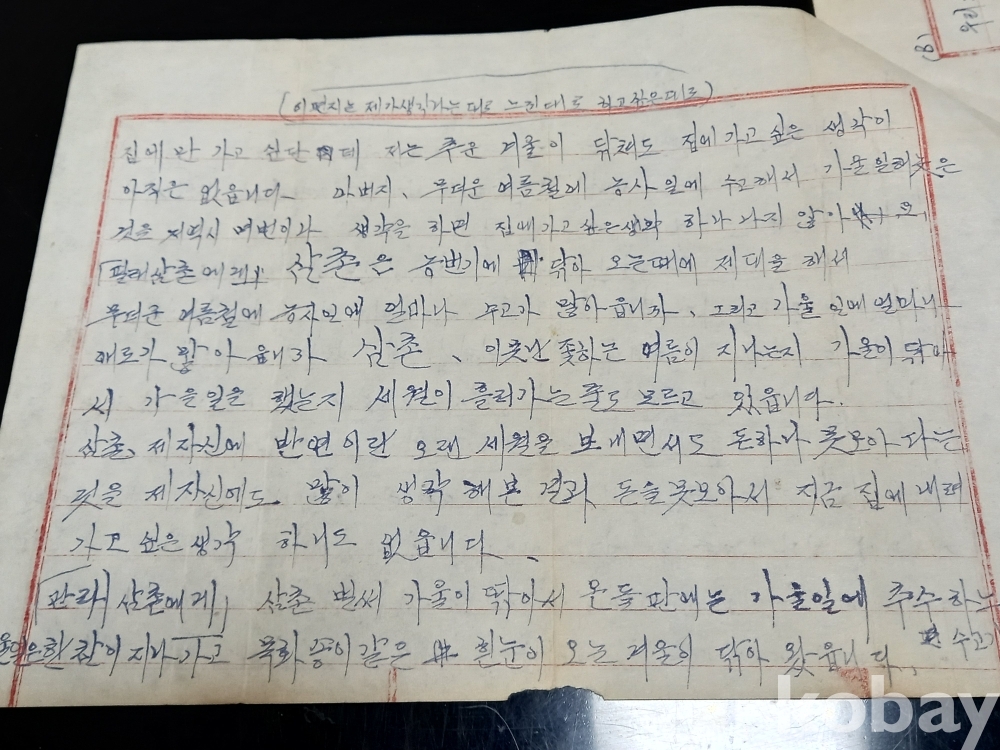 (이 편지는 제가 생각나는 대로 느낀 대로 하고 싶은 대로)
집에만 가고 싶단 데 저는 추운 겨울이 닦쳐도 집에 가고 싶은 생각이
아직은 없읍니다. 아버지, 무더운 여름철에 농사일에 수고해서 가을일해
것을 저역시 여번이나 생각을 하면 집에 가고 싶은 하나 나지 않아
삼촌에게 삼촌은 농번기에 닦아 오는때에 제대을 해서
무더운 여름철에 농사일에 얼마나 수고가 많하읍니까, 그리고 가을 일에 얼마나
애로가 많아읍니까 삼촌, 이못난 좇하는 여름이 지나는지 가을이 닦아
서 가을일을 했는지 세월이 흘러가는줄도 모르고 있읍니다.
삼촌, 제자신에 반면이란 오랜 세월을 보내면서도 돈하나 못모아 다는
것을 제자신에도 많이 생각해본 결과 돈을못모아서 지금 집에 내려
가고 싶은 생각 하나도 없읍니다.
삼촌에게, 삼촌 벌써 가을이 딲아서 온들판에는 가을일에 추수하는
한참이 지나가고 목화송이 같은 흰눈이 오는 겨울이 닦아 왔읍니다, 수고
(8)
우리
kobay